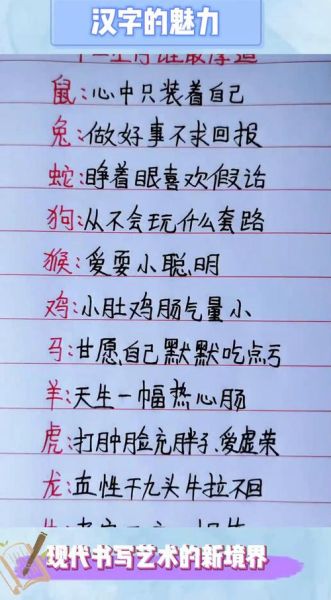 汉字的魅力
鼠:心中只装着自己
兔:做好事不求回报
蛇:睁着眼喜欢假话
狗:从不会玩什么套路
猴:爱耍小聪明
鸡:小肚鸡肠气量小
马:甘愿自己默默吃点亏
羊:天生一幅热心肠
虎:打肿脸充胖子、爱虚荣
龙:血性干九头牛拉不回
现代书写艺术的新境界